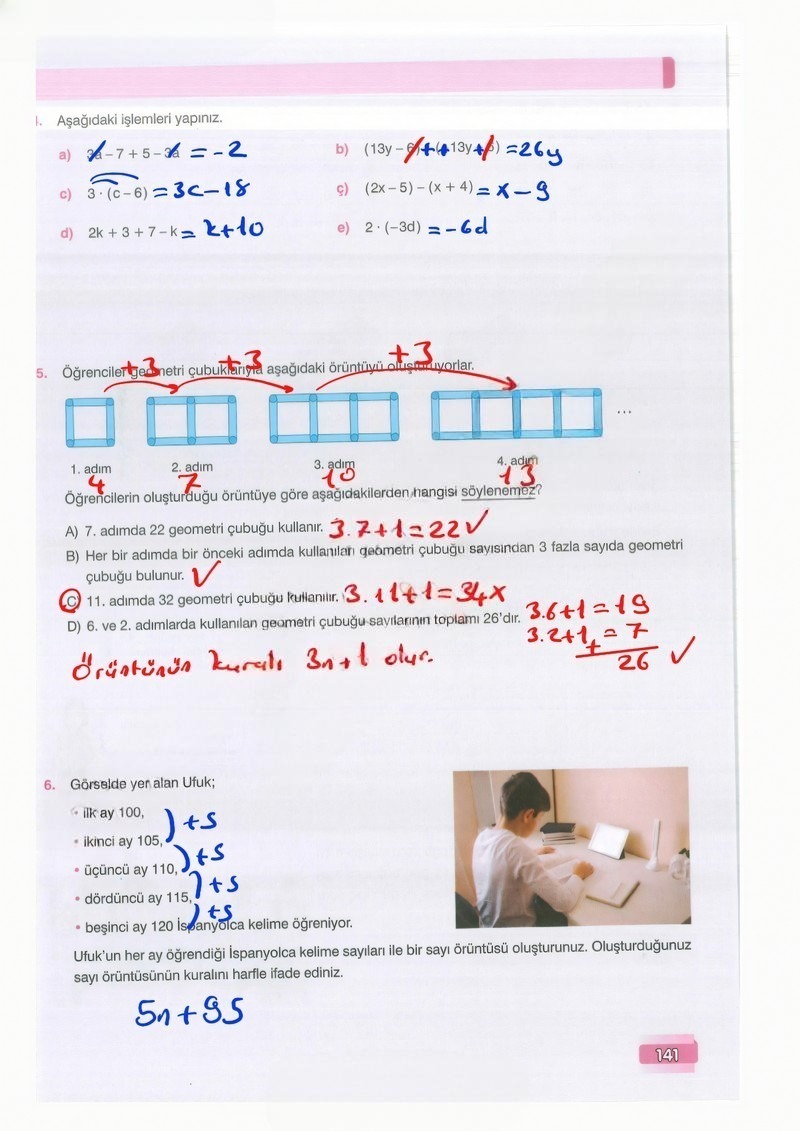 4. Aşağıdaki işlemleri yapınız.
a) 3a – 7 + 5 – 3a = -2
b) (13y – 6) + (+13y + 6) = 26y
c) 3 · (c – 6) = 3c - 18
ç) (2x – 5) – (x + 4) = x - 9
d) 2k + 3 + 7 – k = k+10
e) 2 · (–3d) = -6d
5. Öğrenciler geometri çubuklarıyla aşağıdaki örüntüyü oluşturuyorlar.
+3 +3 +3
...
1. adım 2. adım 3. adım 4. adım
4 7 10 13
Öğrencilerin oluşturduğu örüntüye göre aşağıdakilerden hangisi söylenemez?
A) 7. adımda 22 geometri çubuğu kullanır. 3.7+1=22 ✓
B) Her bir adımda bir önceki adımda kullanılan geometri çubuğu sayısından 3 fazla sayıda geometri
çubuğu bulunur. ✓
C) 11. adımda 32 geometri çubuğu kullanılır. 3.11+1=34 x
D) 6. ve 2. adımlarda kullanılan geometri çubuğu sayılarının toplamı 26'dır. 3.6+1=19
3.2+1=7
+
26 ✓
Örüntünün kuralı 3n+1 olur.
6. Görselde yer alan Ufuk;
• ilk ay 100,
) +5
• ikinci ay 105,
) +5
• üçüncü ay 110,
) +5
• dördüncü ay 115,
) +5
• beşinci ay 120 İspanyolca kelime öğreniyor.
Ufuk'un her ay öğrendiği İspanyolca kelime sayıları ile bir sayı örüntüsü oluşturunuz. Oluşturduğunuz
sayı örüntüsünün kuralını harfle ifade ediniz.
5n+95
141